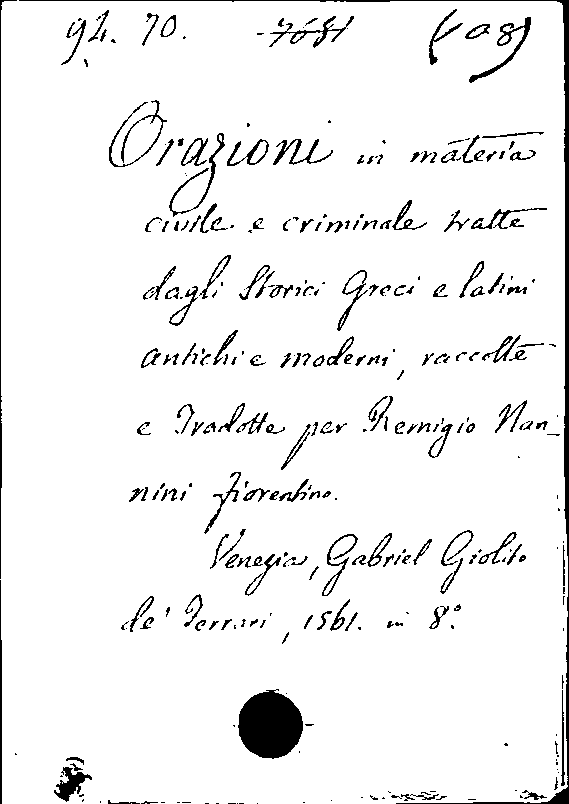 94. 70. 7681 (vol 8)
Orazioni in materia
civile e criminale tratte
dagli Storici Greci e latini
antichi e moderni, raccolte
e Tradotte per Remigio Nan_
nini fiorentino.
Venezia, Gabriel Giolito
de' Ferrari, 1561. in 8º.